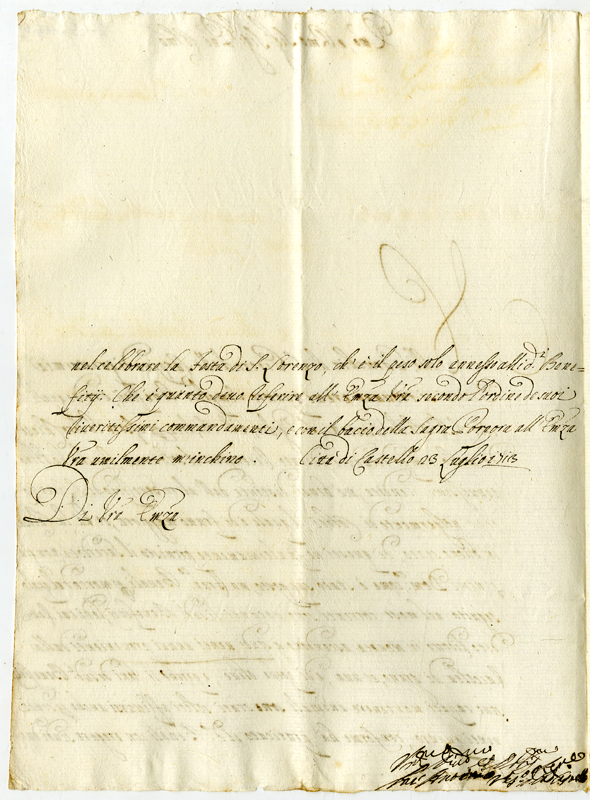 nel celebrare la Festa di S. Lorenzo, ch' è il peso solo annesso alli d.i Bene=
ficij. Che è quanto devo referire all' Emza Vra secondo l'ordine de suoi
riveritissimi commandamenti, e con il bacio della Sagra Porpora all' Emza
Vra umilmente m'inchino. Città di Castello 23 Luglio 1713
Di Vra Emza